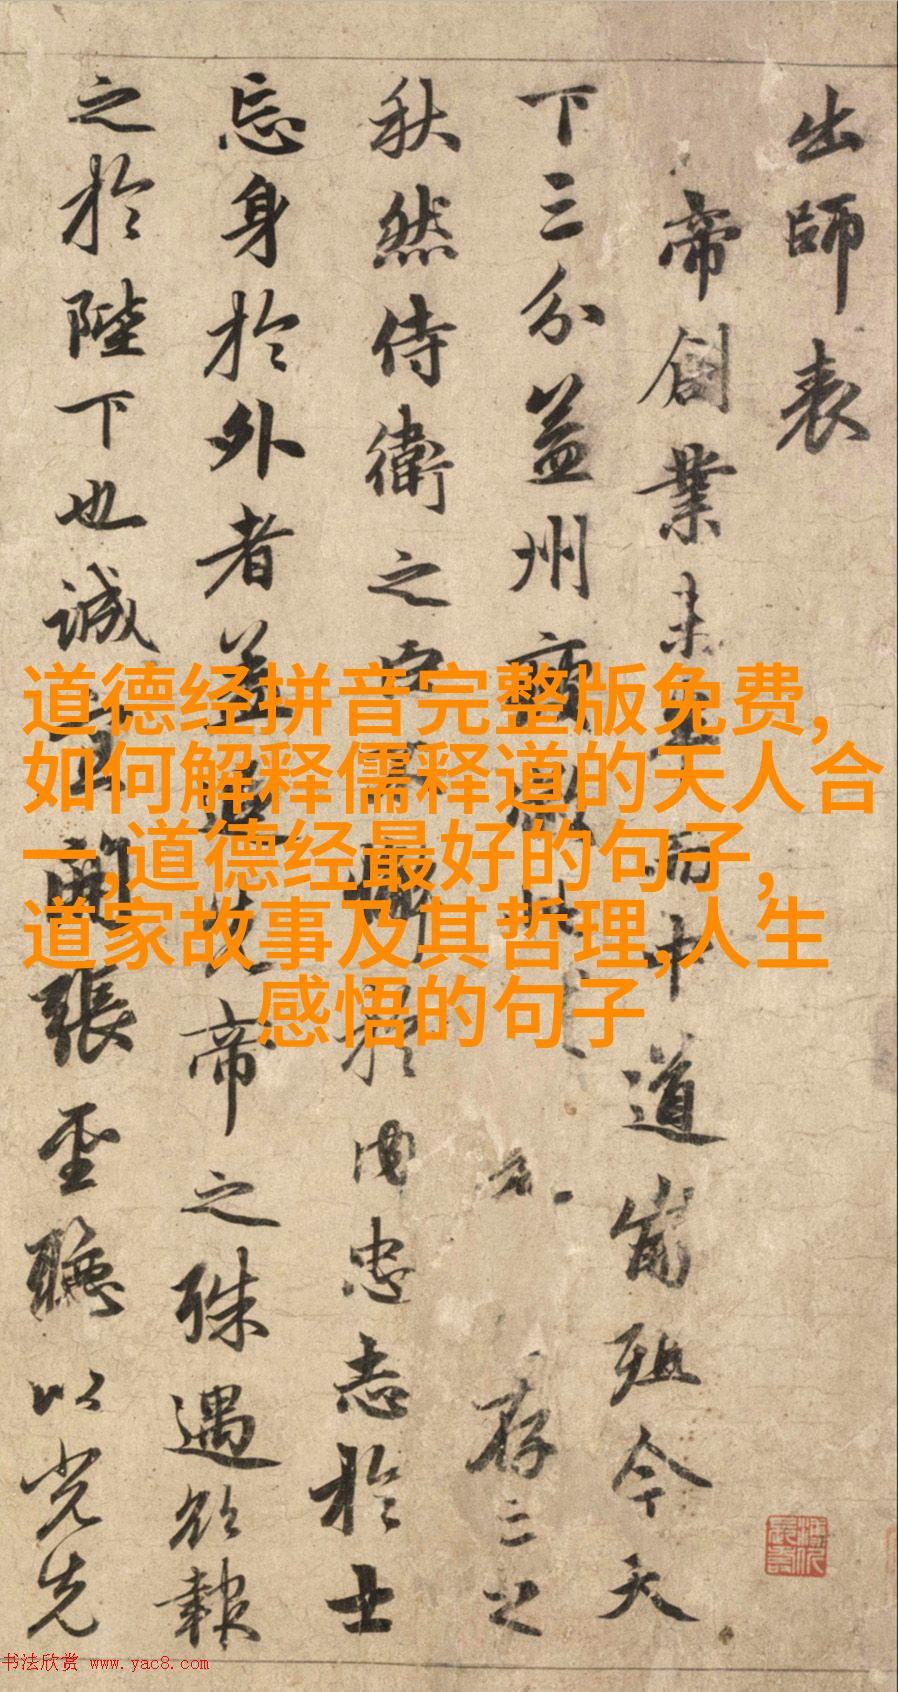 出師表
帝創業未半而中道崩殂今天
下三分益州疲弊此存亡之
秋然侍衛之臣不懈於内忠志於士
忘身於外者盖追先帝之殊遇欲報
之於陛下也誠宜開張聖聽以光先
道德经拼音完整版免费,
如何解释儒释道的天人合
一,道德经最好的句子,
道家故事及其哲理,人生
感悟的句子
书法欣赏 www.yac8.com